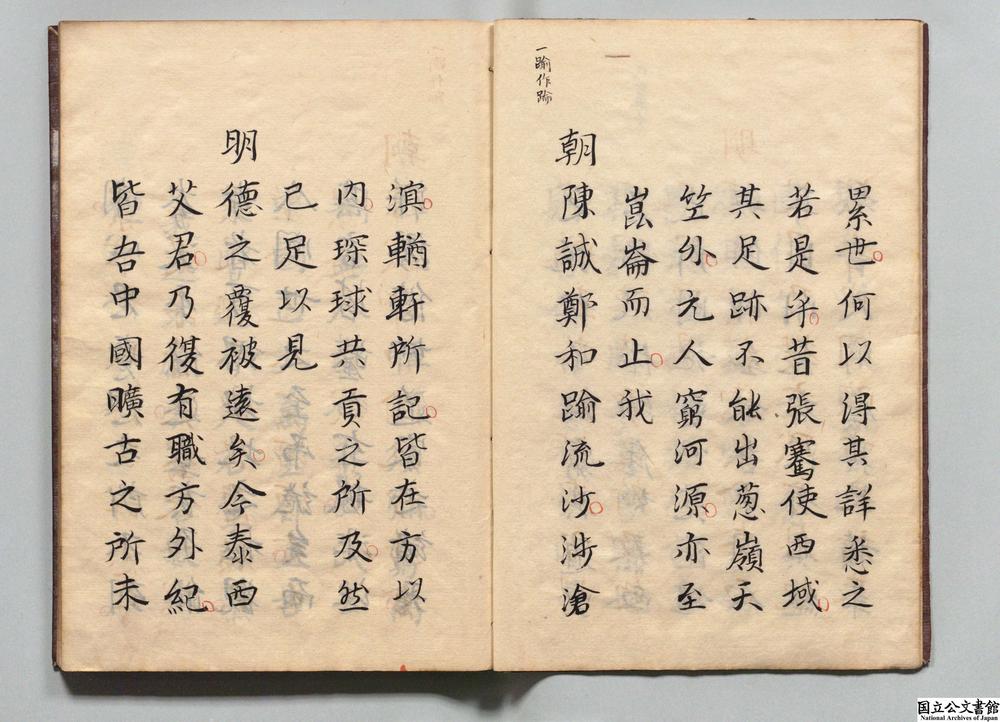 累世何以得其詳悉之
若是乎昔張騫使西域
其足跡不能出葱嶺天
笠外元人窮河源亦至
崑崙而止我
朝陳誠鄭和踰流沙涉滄
一踰作踚
溟輶軒所記皆在方以
内琛球共貢之所及然
已足以見
明德之覆被遠矣今泰西
艾君乃復有職方外紀
皆吾中國曠古之所未
国立公文書館
National Archives of Japan